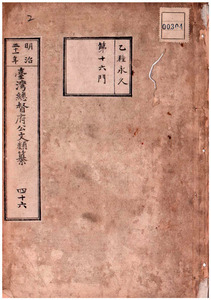 2
00304
乙種永久
第十六門
明治三十一年
臺灣總督府公文類纂
四十六